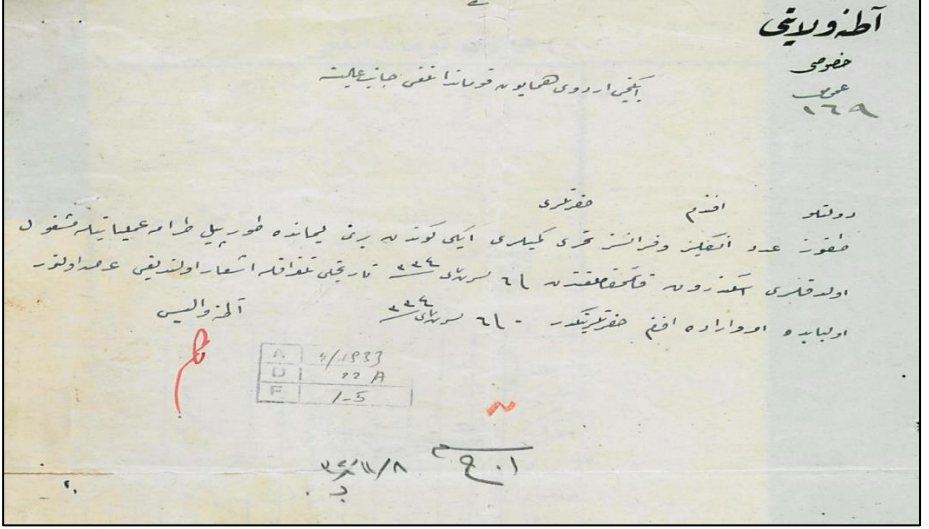 آطنه ولايتى
خصوصى
عمومى
١٦٩
ايكنجى اردوى همايون قوماندانلغى جانب عاليسنه
دولتلو افندم حضرتلرى
طقوز عدد انگليز وفرانسز تحرى كميلرى ايكى كوندن برى ليمانده طورپيل طرامه عملياتيله مشغول
اولدقلرى اسكندرون قائممقاملغندن ٦ تشرين ثانى ٣٣٤ تاريخلى تلغرافله اشعار اولنديغى عرض اولنور
اولبابده امر واراده افندم حضرتلرينكدر ٦ تشرين ثانى ٣٣٤
آطنه واليسى
A 4/1933
D 22 A
F 1-5
ا . ح
٨/١١/٣٣٤